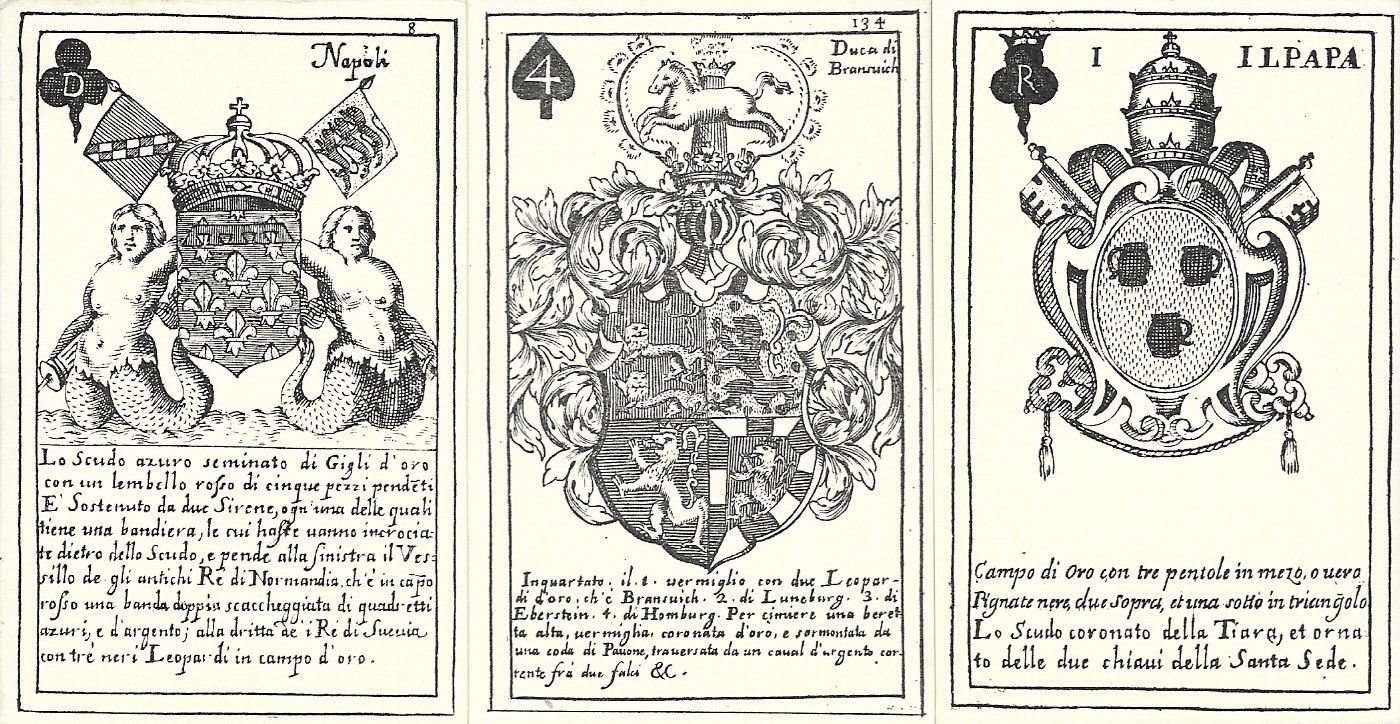 8
D
Napoli
Lo Scudo azuro seminato di Gigli d'oro
con un lembello rosso di cinque pezzi pendẽti
E' Sostenuto da due Sirene, ogn'una delle quali
tiene una bandiera, le cui haste uanno incrocia-
te dietro dello Scudo, e pende alla sinistra il Ves-
sillo de gli antichi Re di Normandia, ch'è in cãpo
rosso una banda doppia scaccheggiata di quadretti
azuri, e d'argento; alla dritta de i Re di Sueuia
con trè neri Leopardi in campo d'oro.
134
4
Duca di
Bransuich
Inquartato. il. 1. uermiglio con due Leopar-
di d'oro, ch'è Bransuich. 2. di Luneburg. 3. di
Eberstein. 4. di Homburg. Per cimiere una beret
ta alta, uermiglia, coronata d'oro, e sormontata da
una coda di Pauone, trauersata da un caual d'argento cor-
rente frà due falci &c.
R
I
IL PAPA
Campo di Oro con tre pentole in mezo, o uero
Pignate nere, due sopra, et una sotto in triangolo
Lo Scudo coronato della Tiara, et orna
to delle due chiaui della Santa Sede.